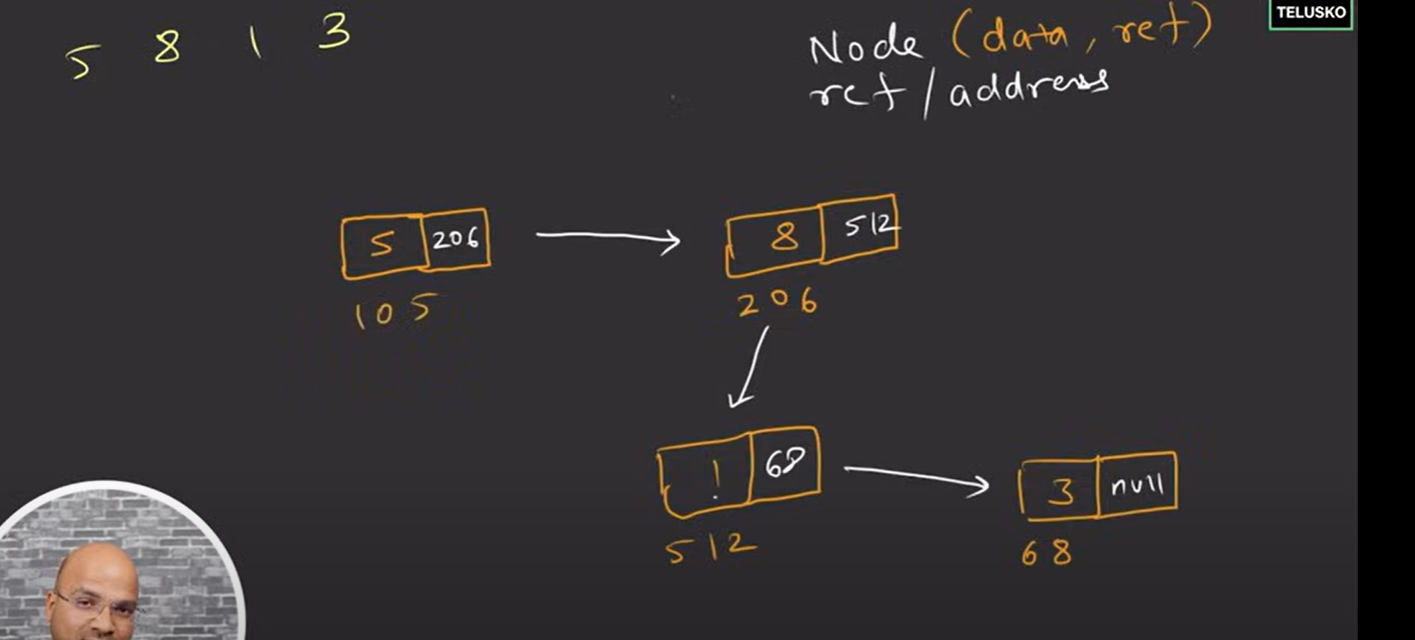 TELUSKO
5 8 1 3
Node (data, ref)
ref/address
5 206
105
8 512
206
1 68
512
3 null
68